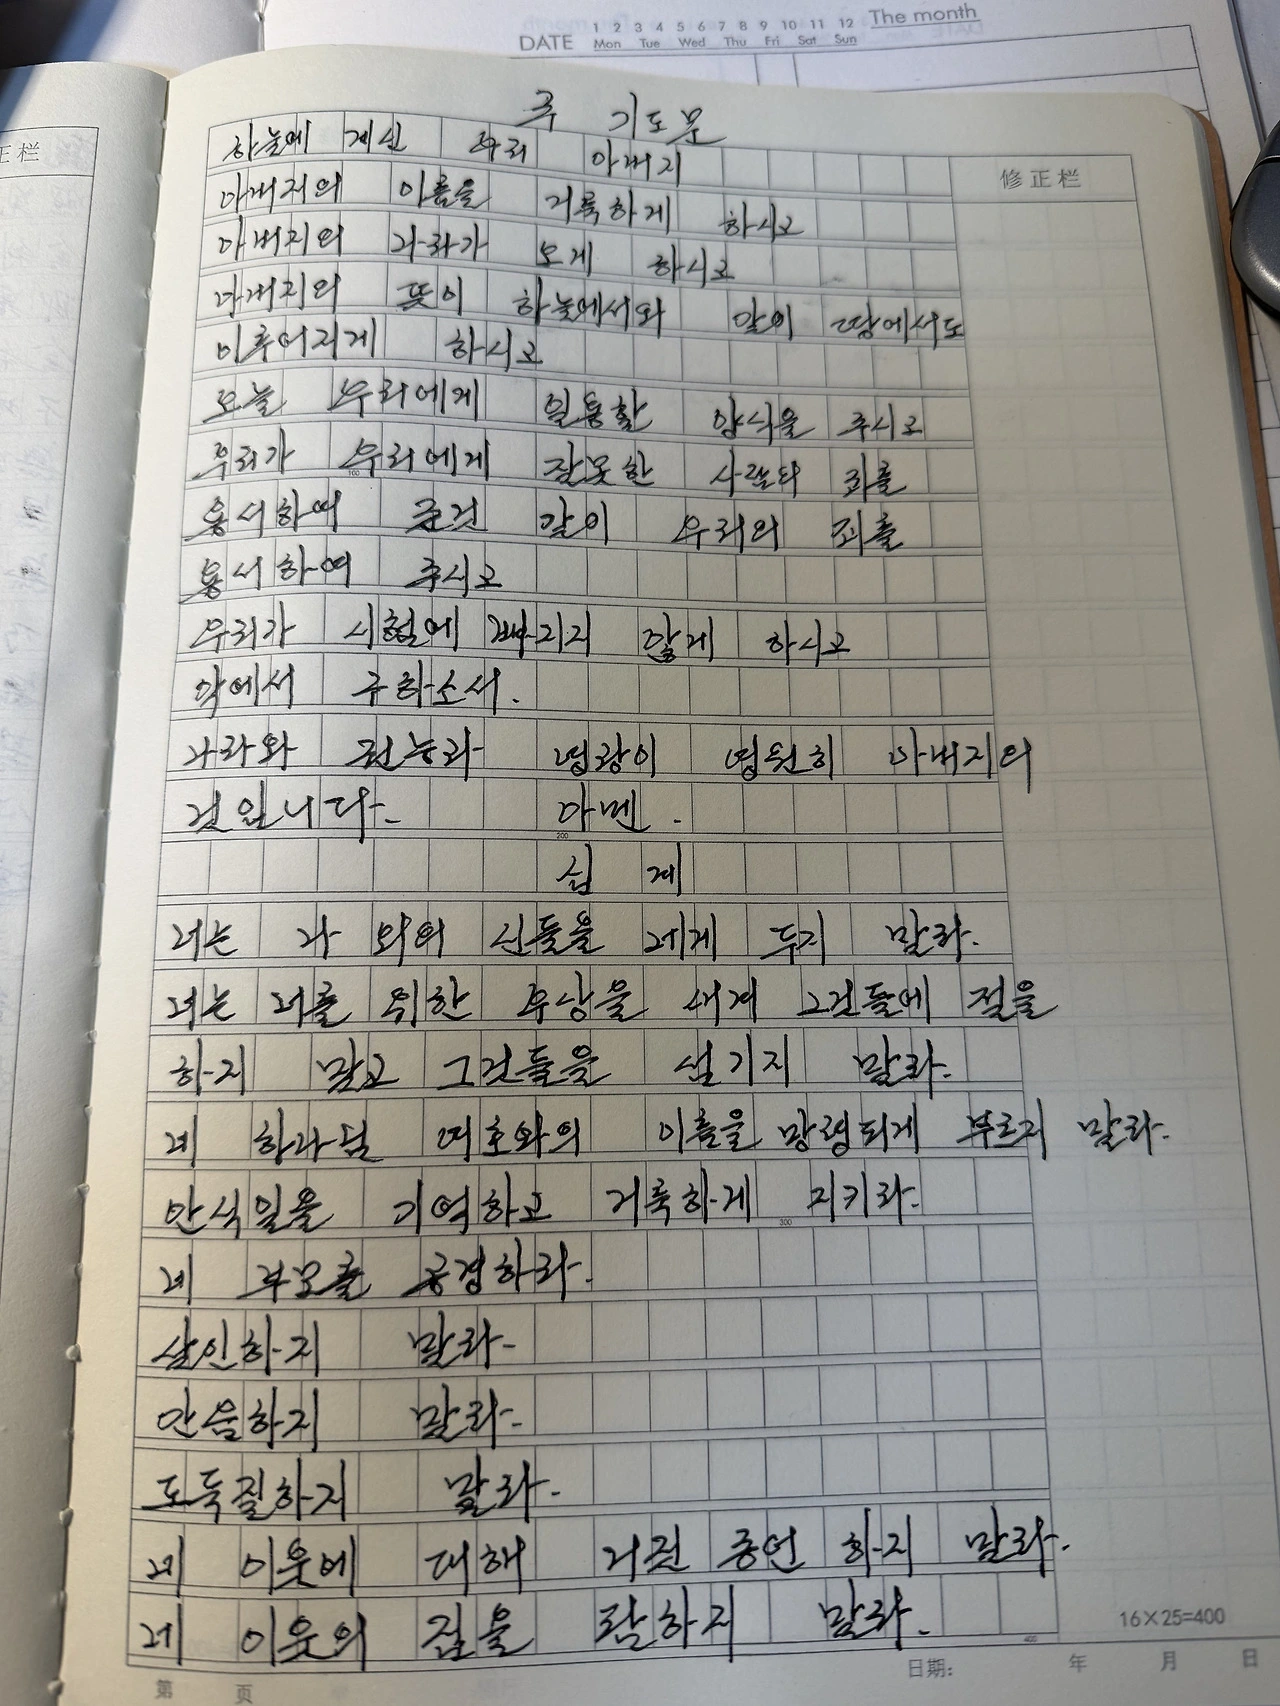 DATE 1 2 3 4 5 6 7 8 9 10 11 12 The month
Mon Tue Wed Thu Fri Sat Sun
正栏
修正栏
주 기도문
하늘에 계신 우리 아버지
아버지의 이름을 거룩하게 하시고
아버지의 나라가 오게 하시고
아버지의 뜻이 하늘에서와 같이 땅에서도
이루어지게 하시고
오늘 우리에게 일용할 양식을 주시고
우리가 우리에게 잘못한 사람의 죄를
100
용서하여 준것 같이 우리의 죄를
용서하여 주시고
우리가 시험에 빠지지 않게 하시고
악에서 구하소서.
나라와 권능과 영광이 영원히 아버지의
것입니다. 아멘.
200
십 계
너는 나 외의 신들을 네게 두지 말라.
너는 너를 위한 우상을 새겨 그것들에 절을
하지 말고 그것들을 섬기지 말라.
네 하나님 여호와의 이름을 망령되게 부르지 말라.
안식일을 기억하고 거룩하게 지키라.
300
네 부모를 공경하라.
살인하지 말라.
간음하지 말라.
도둑질하지 말라.
네 이웃에 대해 거짓 증언 하지 말라.
네 이웃의 집을 탐하지 말라.
400
16×25=400
第 页
日期: 年 月 日